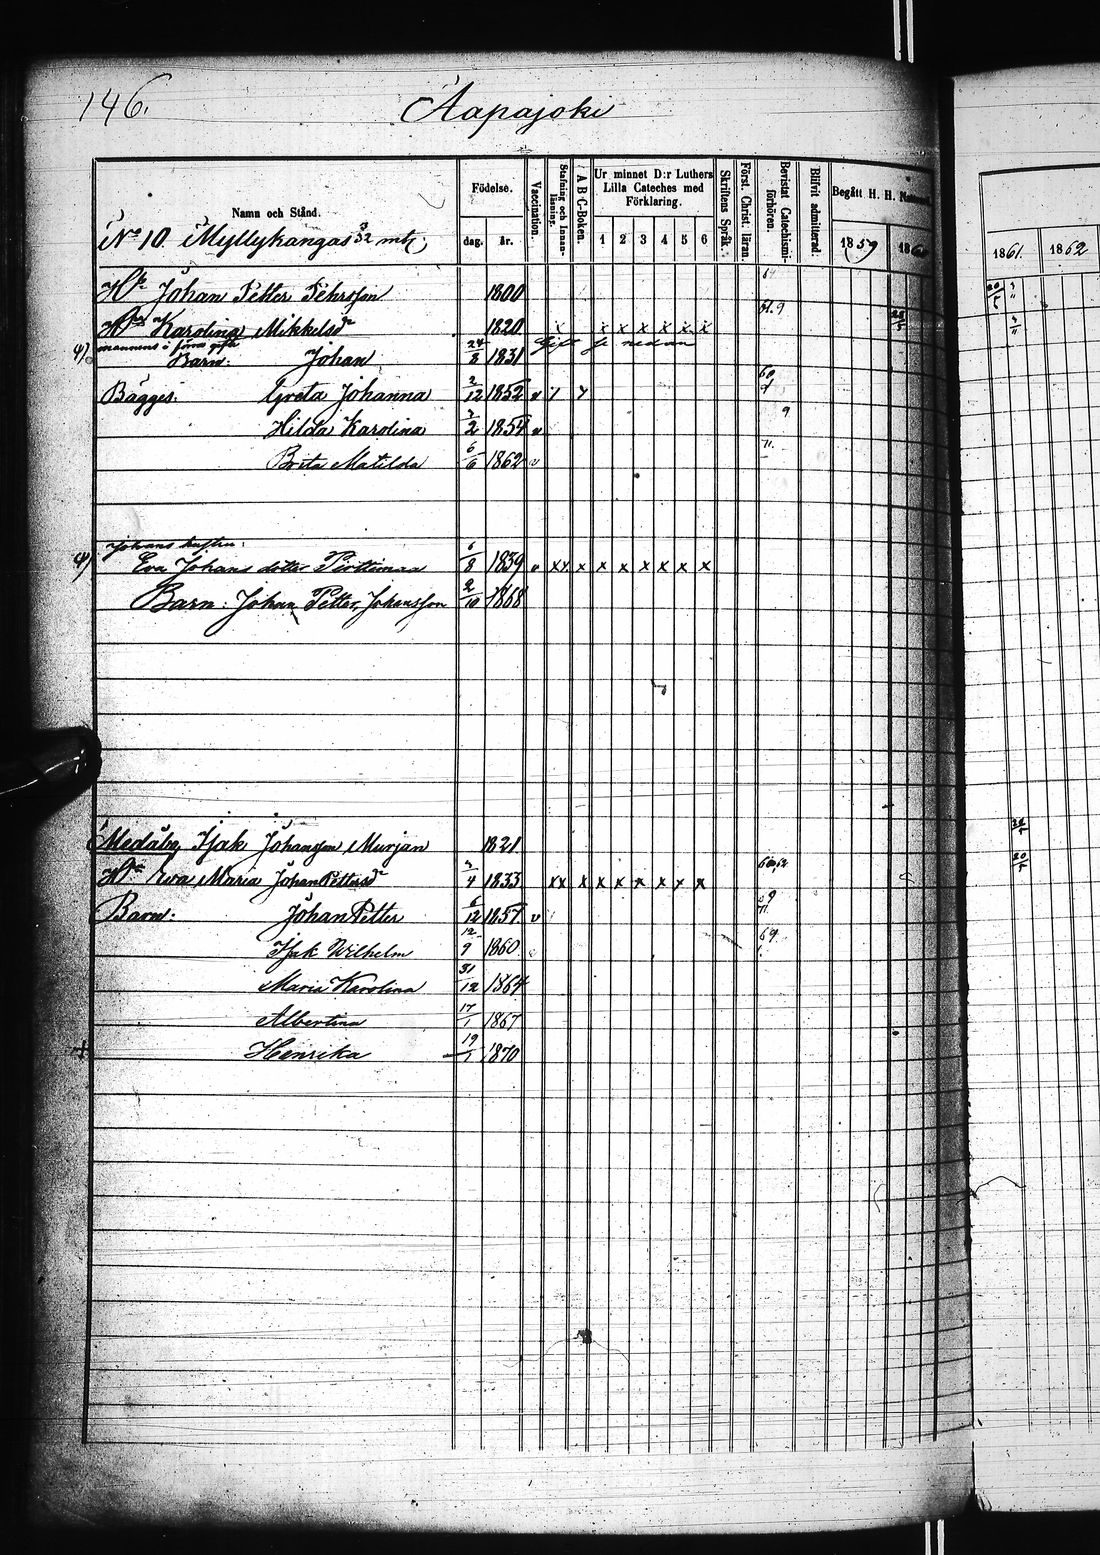 146.
Aapajoki
Namn och Stånd.
Födelse.
dag. år.
Vaccination.
Stafning och Innanläsning.
A B C-Boken.
Ur minnet D:r Luthers Lilla Cateches med Förklaring.
1 2 3 4 5 6
Skriftens Språk.
Först. Christ. läran.
Bevistat Catechismiförhören.
Blifvit admitterad.
Begått H. H.
1859 1860 1861. 1862
No 10. Myllykangas 3/32 mtl,
Johan Petter Pehrsson 1800 20/5
Karolina Mikkelsdr 1820 x x x x x x x 28/5
mannens i förra gifte
Barn: Johan 24/8 1831 Gift se nedan
Bägges: Greta Johanna 2/12 1852 v
Hilda Karolina 2/2 1854 v
Brita Matilda 6/6 1862 v
Johans hustru:
Eva Johans dotter Perttimaa 6/8 1839 v xx x x x x x x x
Barn: Johan Petter, Johansson 2/10 1868
Medåbo Isak Johansson Murjan 1821
Hu Eva Maria Johan Pettersdr 3/4 1833 xx x x x x x x x 20/5
Barn: Johan Petter 6/12 1857 v
Isak Wilhelm 12/9 1860 69
Maria Karolina 31/12 1864
Albertina 17/1 1867
+ Henrika 19/1 1870